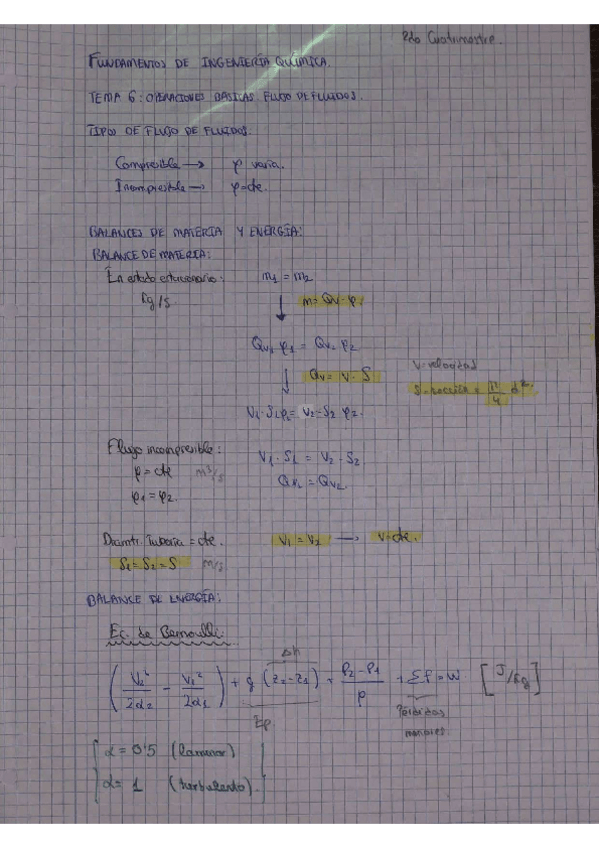 2do Cuatrimestre.
FUNDAMENTOS DE INGENIERÍA QUÍMICA.
TEMA 6: OPERACIONES BÁSICAS. FLUJO DE FLUIDOS.
TIPOS DE FLUJO DE FLUIDOS.
Compresible → ρ varía.
Incompresible → ρ=cte.
BALANCES DE MATERIA Y ENERGÍA:
BALANCE DE MATERIA:
En estado estacionario: m₁ = m₂
Kg/s. ↓ m = Qv · ρ
Qv₁ ρ₁ = Qv₂ ρ₂
↓ Qv = V · S
V=velocidad
S=sección = π/4 d².
V₁·S₁ρ₁ = V₂·S₂ ρ₂.
Flujo incompresible: V₁ · S₁ = V₂ · S₂
ρ = cte m³/s Qv₁ = Qv₂
ρ₁ = ρ₂.
Diamtr. Tubería = cte. V₁ = V₂ → v=cte.
S₁ = S₂ = S m/s
BALANCE DE ENERGÍA:
Ec. de Bernoulli:
Δh
(V₂²/2α₂ − V₁²/2α₁) + g (z₂−z₁) + P₂−P₁/ρ + Σf = W [J/Kg]
Ep
Pérdidas
α = 0'5 (laminar)
α = 1 (turbulento).